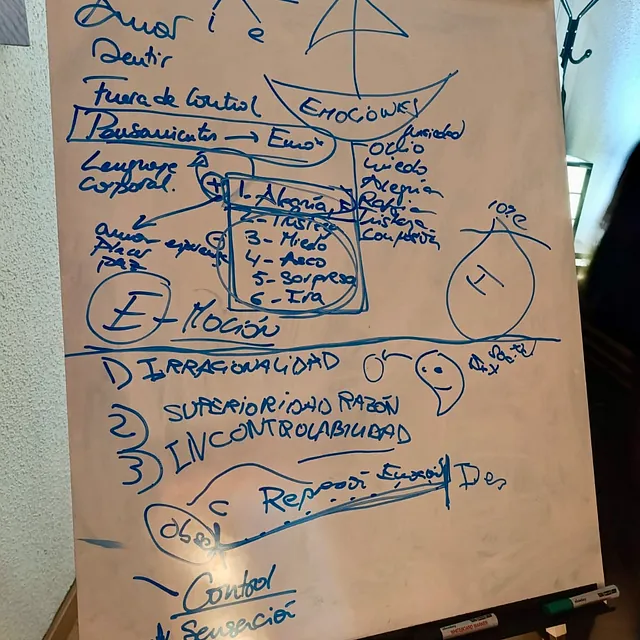 Amor
i e
Sentir
Fuera de Control
EMOCIONES
Pensamientos → Emon
(ansiedad)
Odio
miedo
Alegria
Rabia
Tristeza
Lenguaje
Corporal.
+ 1. Alegria
2- Tristeza
3- Miedo
4- Asco
5- Sorpresa
6- Ira
amor
Placer
paz
10%C
H
E-MOCIÓN
1) IRRACIONALIDAD
2) SUPERIORIDAD RAZÓN
3) INCONTROLABILIDAD
C
Des
Control
Sensación